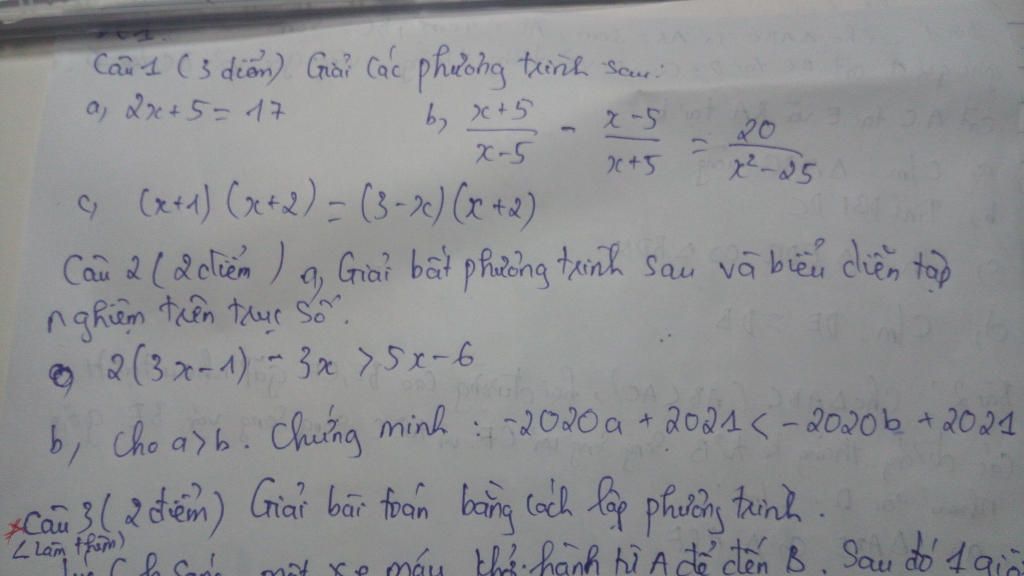 Câu 1 (3 điểm) Giải các phương trình sau:
a, 2x+5=17 b, x+5/x-5 - x-5/x+5 = 20/x²-25
c, (x+1)(x+2)=(3-x)(x+2)
Câu 2 (2 điểm) a, Giải bất phương trình sau và biểu diễn tập
nghiệm trên trục số.
2(3x-1) - 3x > 5x-6
b, cho a>b. Chứng minh: -2020a + 2021 < -2020b + 2021
*Câu 3 (2 điểm) Giải bài toán bằng cách lập phương trình.
(làm thêm)
một xe máy khởi hành từ A để đến B. Sau đó 1 giờ